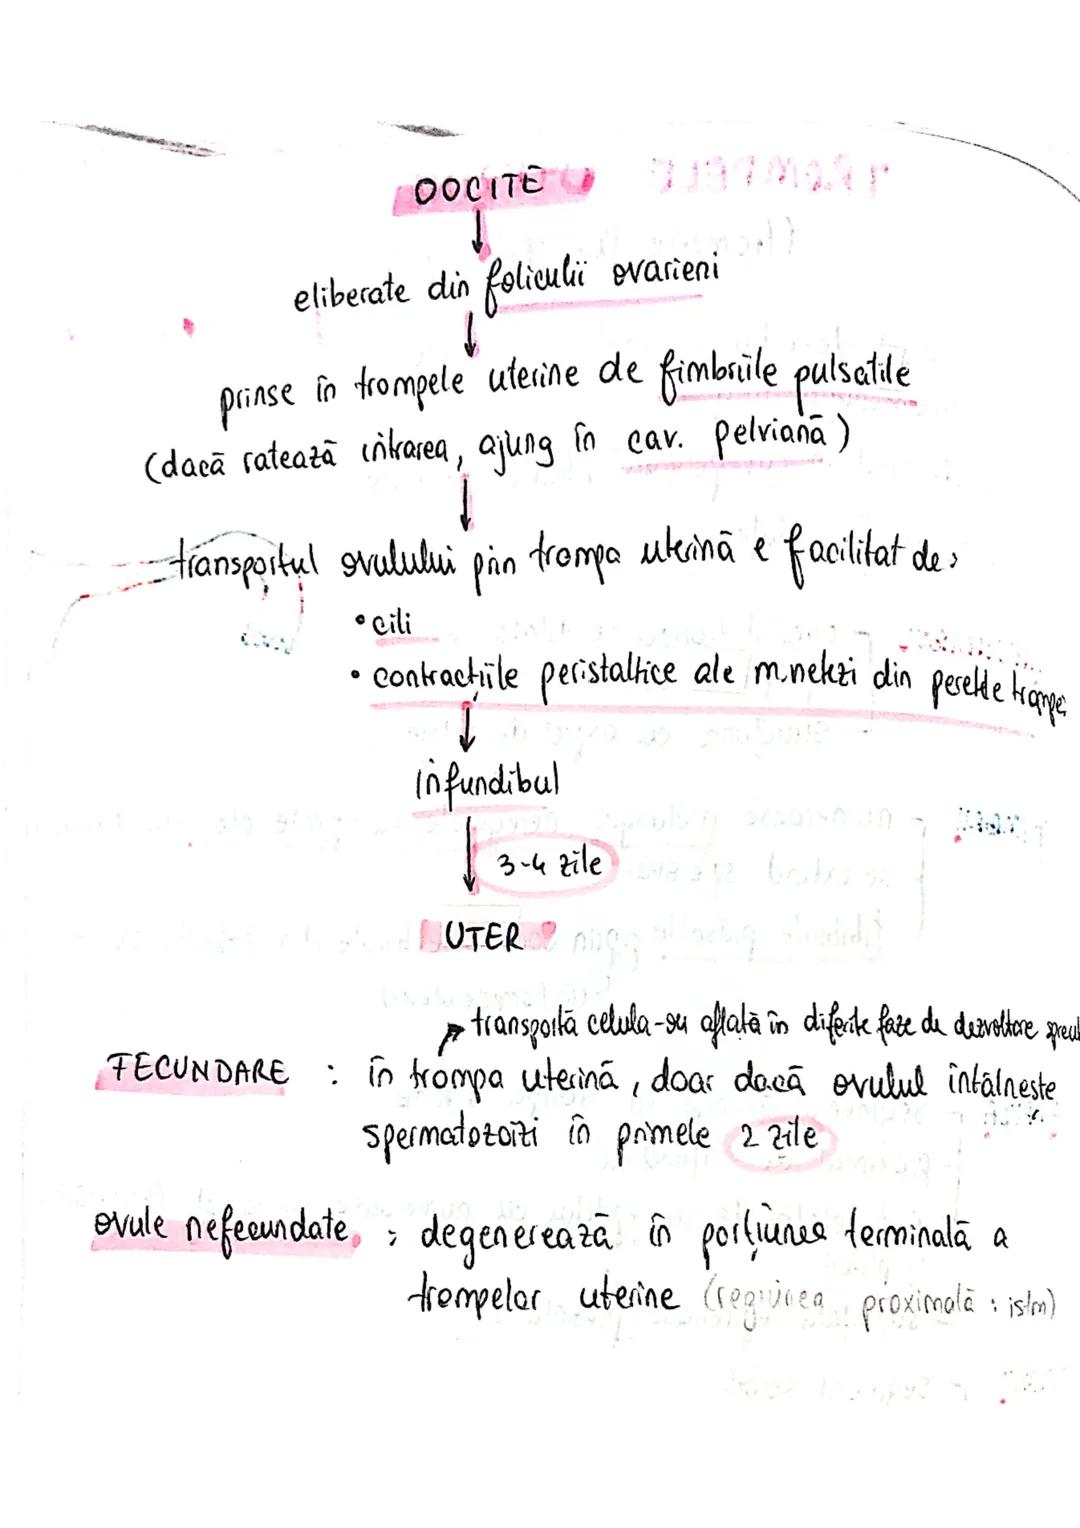 OOCITE
eliberate din foliculii ovarieni
prinse în trompele uterine de fimbriile pulsatile
(dacă ratează intrarea, ajung în cav. pelviană)
transportul ovulului prin trompa uterină e facilitat de:
• cili
• contracțiile peristaltice ale m.netezi din peretele trompei
infundibul
3-4 zile
UTER
transportă celula-ou aflată în diferite faze de dezvoltare spre
FECUNDARE : în trompa uterină, doar dacă ovulul întâlnește
spermatozoizi în primele 2 zile
ovule nefecundate : degenerează în porțiunea terminală a
trompelor uterine (regiunea proximală : istm)